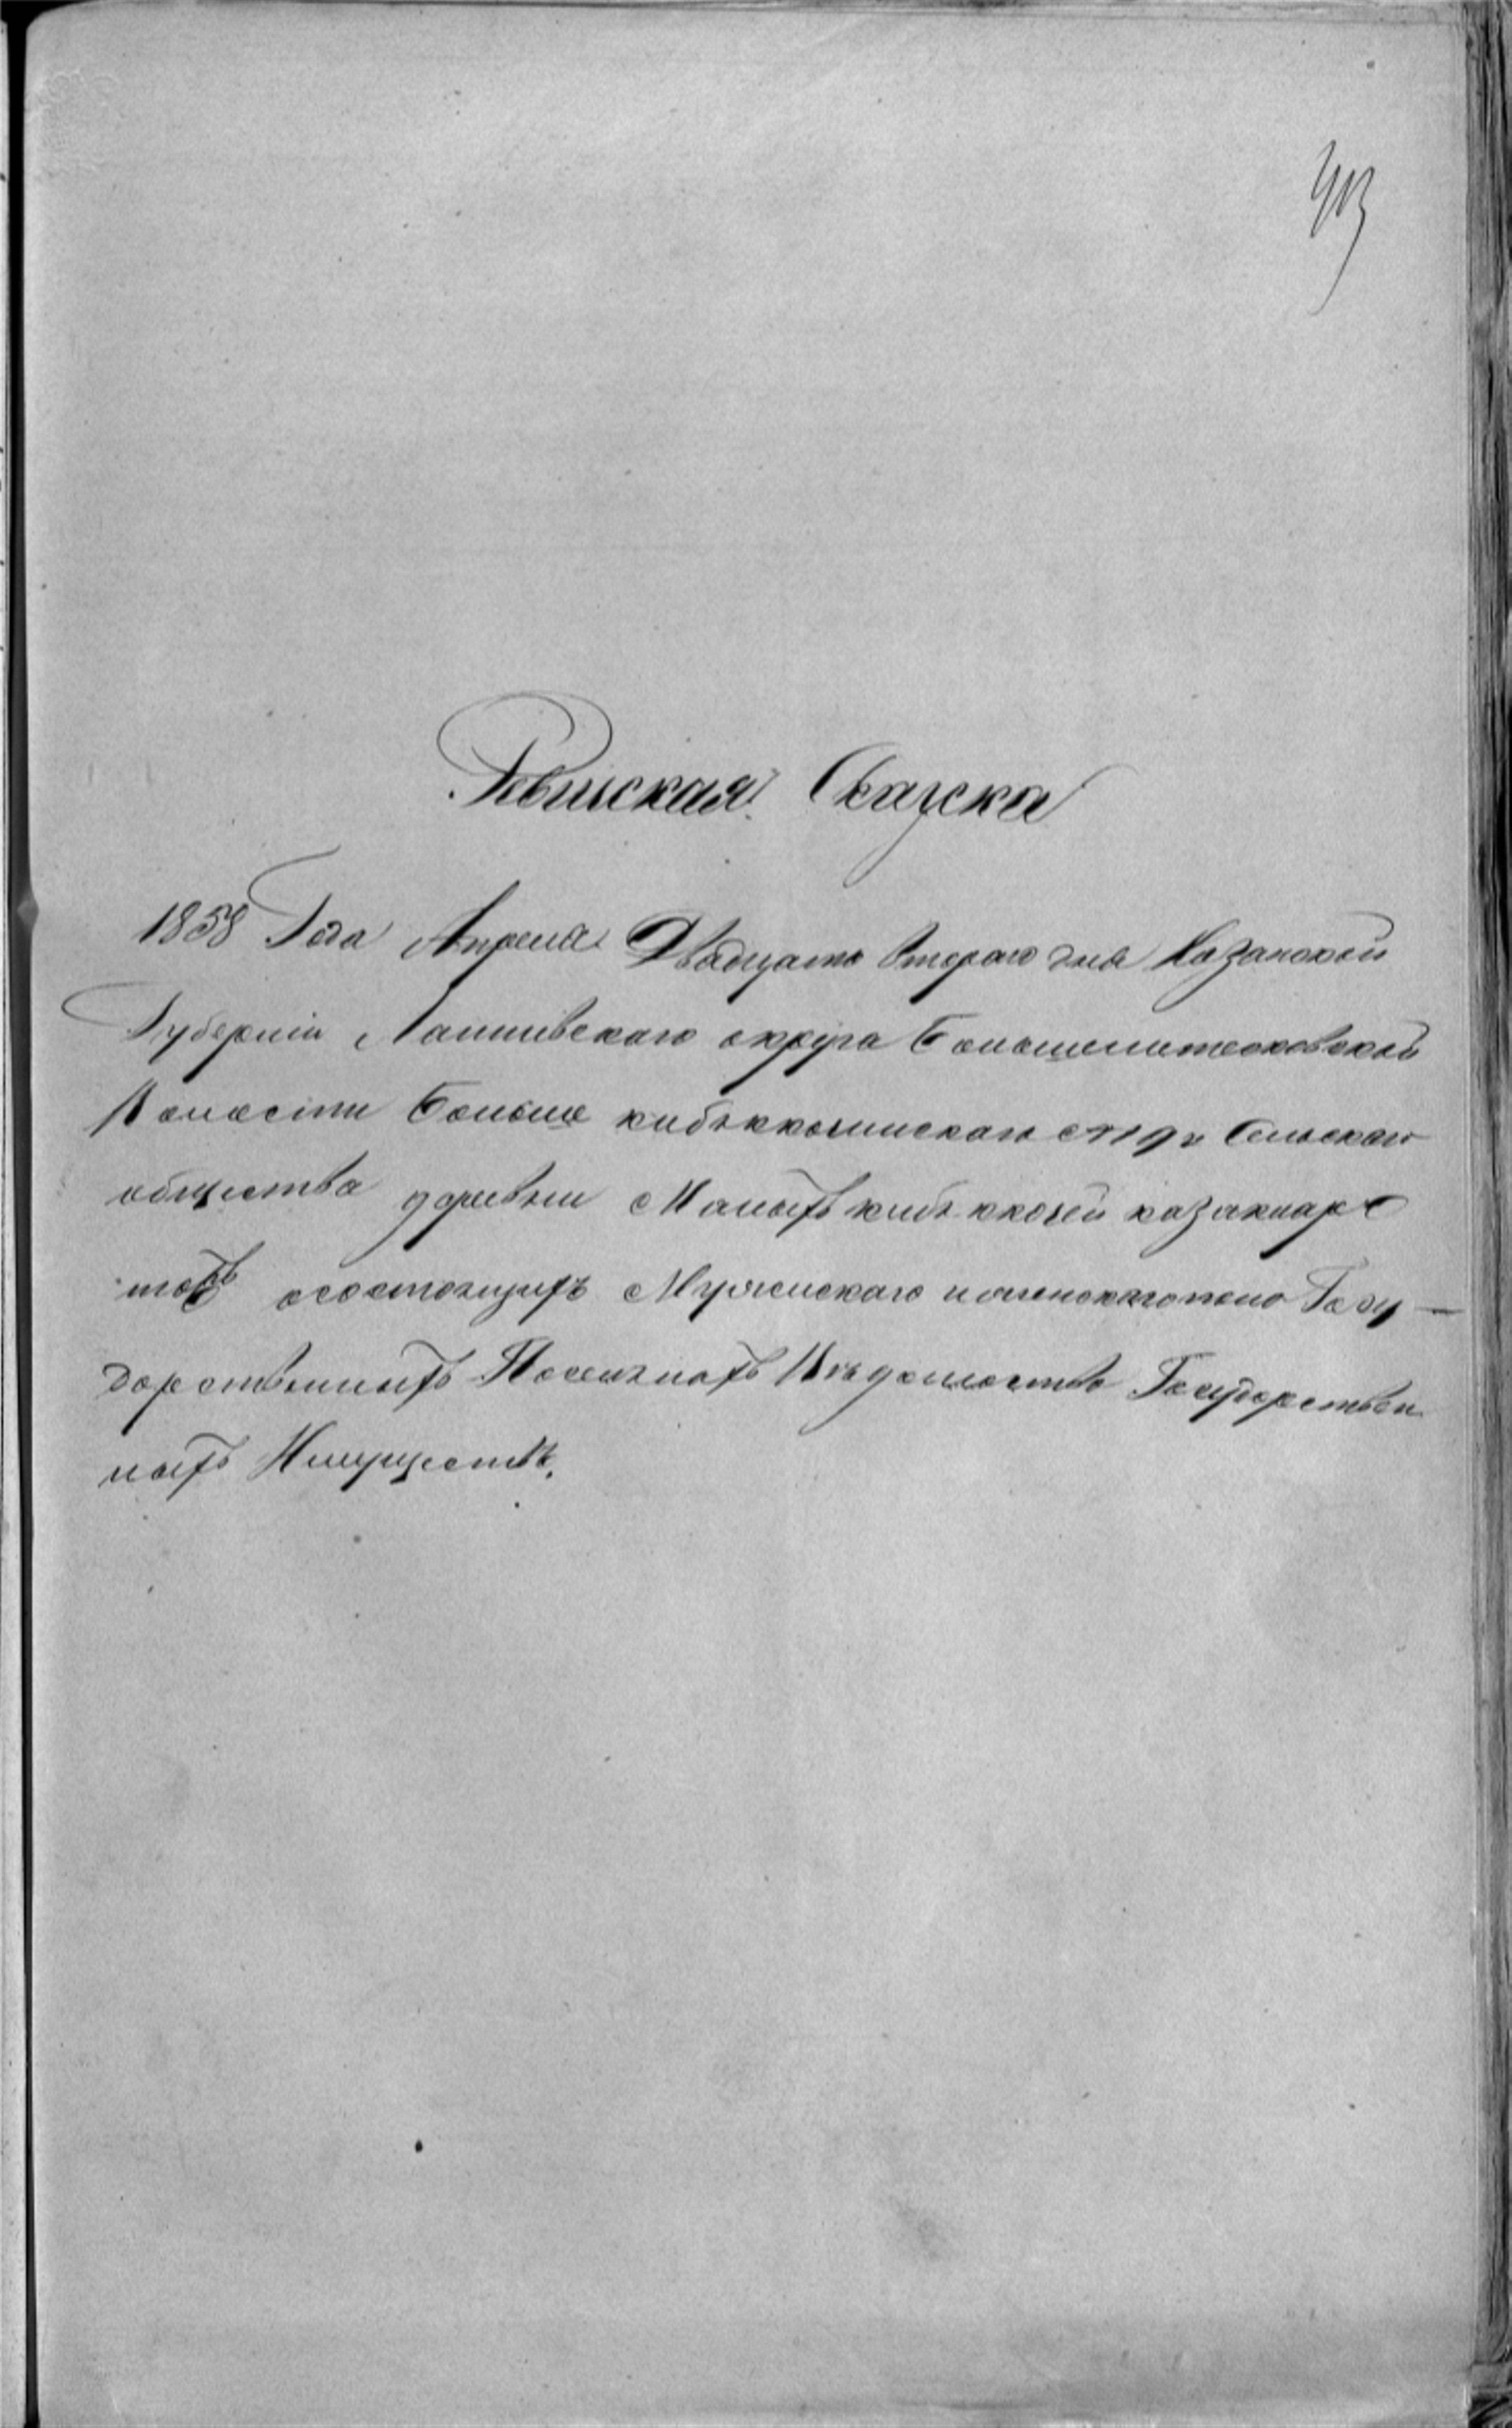 413
Ревизская Сказка
1858 Года Апреля Двадцать второго дня Казанской
Губернии Лаишевского округа
Волости Больше кибяккозинскаго Сельскаго
общества деревни Малыхъ кибякозей
состоящихъ Мужескаго и женскаго пола Госу-
дарственныхъ Поселянахъ Ведомства Государствен
ныхъ Имуществъ.